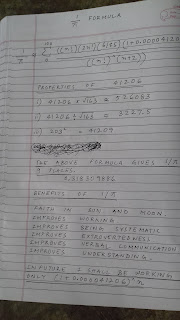 1/π FORMULA
PROPERTIES OF 41206
i) 41206 × √163 = 526083
ii) 41206 ÷ √163 = 3227.5
iii) 203² = 41209
THE ABOVE FORMULA GIVES 1/π
9 PLACES.
BENEFITS OF 1/π
FAITH IN SUN AND MOON.
IMPROVES WORKING
IMPROVES BEING SYSTEMATIC
IMPROVES EXTROVERTEDNESS.
IMPROVES VERBAL COMMUNICATION
IMPROVES UNDERSTANDING.
IN FUTURE I SHALL BE WORKING
ONLY (1+0.000041206)^n